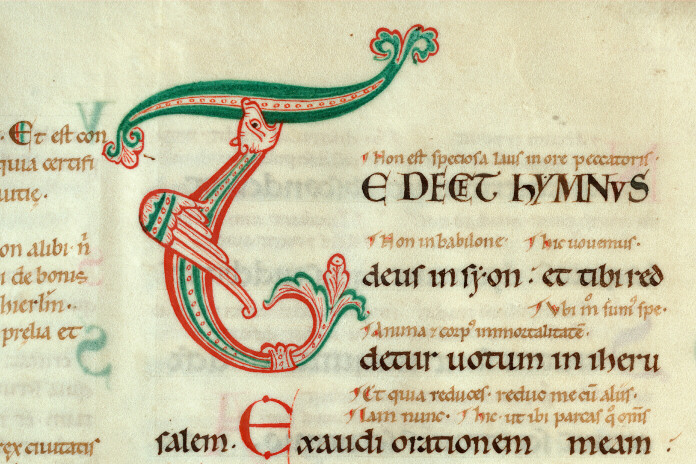 Et est con
quia certifi
uitię.
Non est speciosa laus in ore peccatoris.
TE DECET hYMNVS
Non in babilone. hic uouemus.
on alibi. n̄
deus in syon: et tibi red
i de bonis
hierl̄m.
Vbi m̄ sum⁹ spe.
Anima ⁊ corp⁹ immortalitatē.
prelia et
detur uotum in iheru
Et quia reduces. reduc me cū aliis.
Iam nunc. hic. ut ibi parcas q̄ om̄s
rex ciuitatis
salem. Exaudi orationem meam.